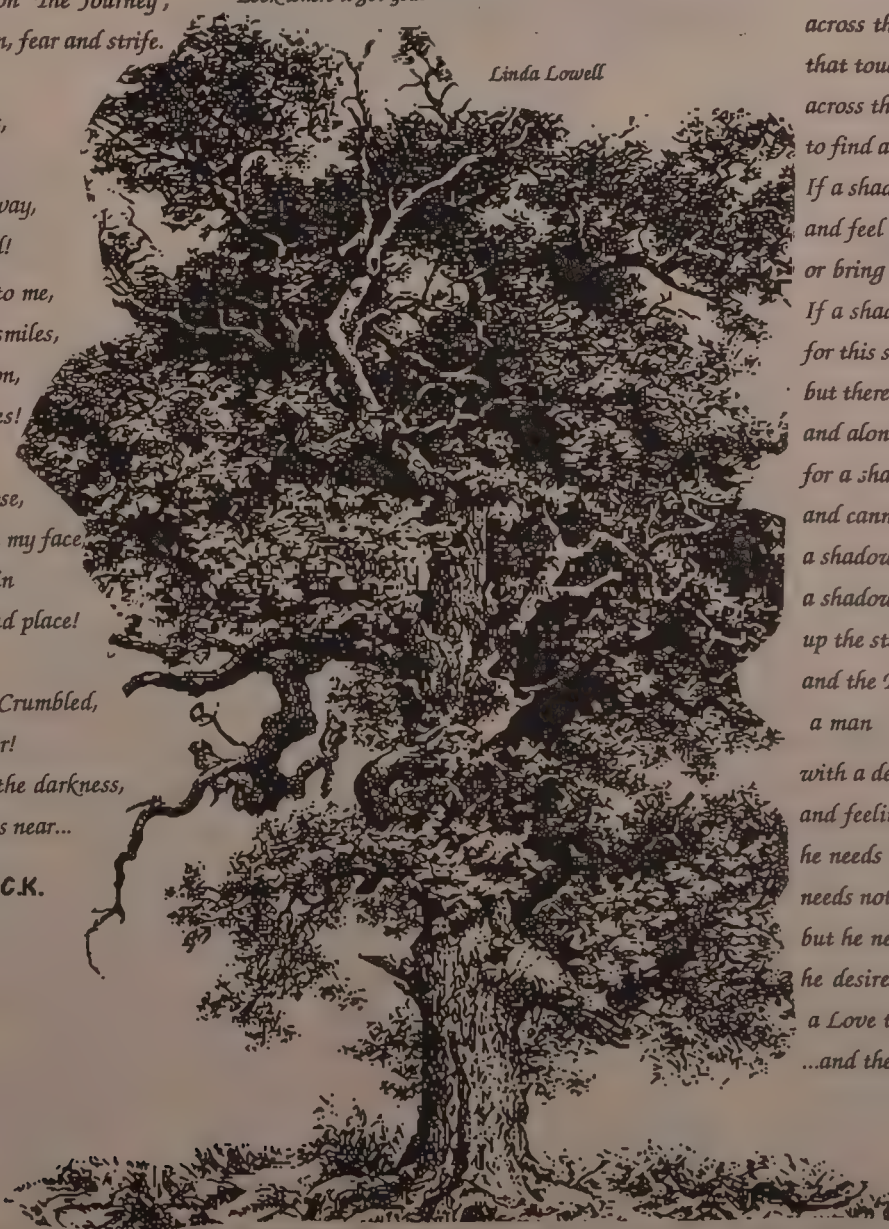 on "The Journey",
n, fear and strife.
way,
to me,
smiles,
my face
in
place!
Crumbled,
the darkness,
s near...
C.K.
Linda Lowell
across th
that tou
across th
to find a
If a shad
and feel
or bring
If a shad
for this s
but there
and alon
for a sha
and cann
a shadow
a shadow
up the st
and the
a man
with a de
and feelin
he needs
needs not
but he ne
he desire
a Love t
...and the